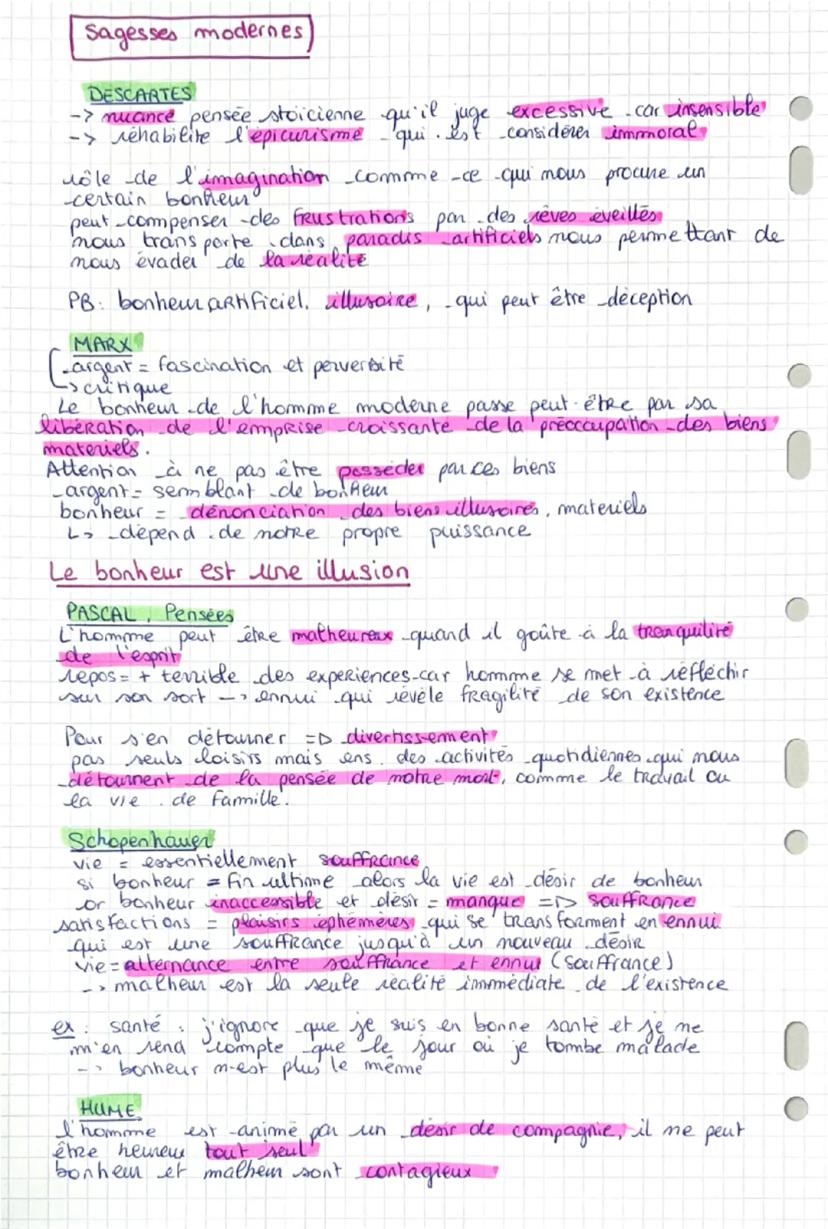 Sagesses modernes
DESCARTES
-> nuance pensée stoïcienne qu'il juge excessive car insensible
-> réhabilite l'épicurisme qui est considérer immoral
rôle de l'imagination comme ce qui nous procure un
certain bonheur
peut compenser des frustrations par des rêves éveillés
nous transporte dans paradis artificiels nous permettant de
nous évader de la réalité
PB: bonheur artificiel, illusoire, qui peut être déception
MARX
argent = fascination et perversité
-> critique
Le bonheur de l'homme moderne passe peut-être par sa
libération de l'emprise croissante de la préoccupation des biens
materiels.
Attention à ne pas être posséder par ces biens
argent = semblant de bonheur
bonheur = dénonciation des biens illusoires, materiels
↳ dépend de notre propre puissance
Le bonheur est une illusion
PASCAL, Pensées
L'homme peut être malheureux quand il goûte à la tranquilité
de l'esprit
repos = + terrible des experiences car homme se met à réfléchir
sur son sort -> ennui qui révèle fragilité de son existence
Pour s'en détourner => divertissement
pas seuls loisirs mais ens. des activités quotidiennes qui nous
détournent de la pensée de notre mort, comme le travail ou
la vie de famille.
Schopenhauer
vie = essentiellement souffrance
si bonheur = fin ultime alors la vie est désir de bonheur
or bonheur inaccessible et désir = manque => souffrance
satisfactions = plaisirs éphémères qui se transforment en ennui
qui est une souffrance jusqu'à un nouveau désir
vie = alternance entre souffrance et ennui (souffrance)
-> malheur est la seule réalité immédiate de l'existence
ex: santé: j'ignore que je suis en bonne santé et je ne
m'en rend compte que le jour où je tombe malade
-> bonheur n'est plus le même
HUME
l'homme est animé par un désir de compagnie, il ne peut
être heureux tout seul
bonheur et malheur sont contagieux